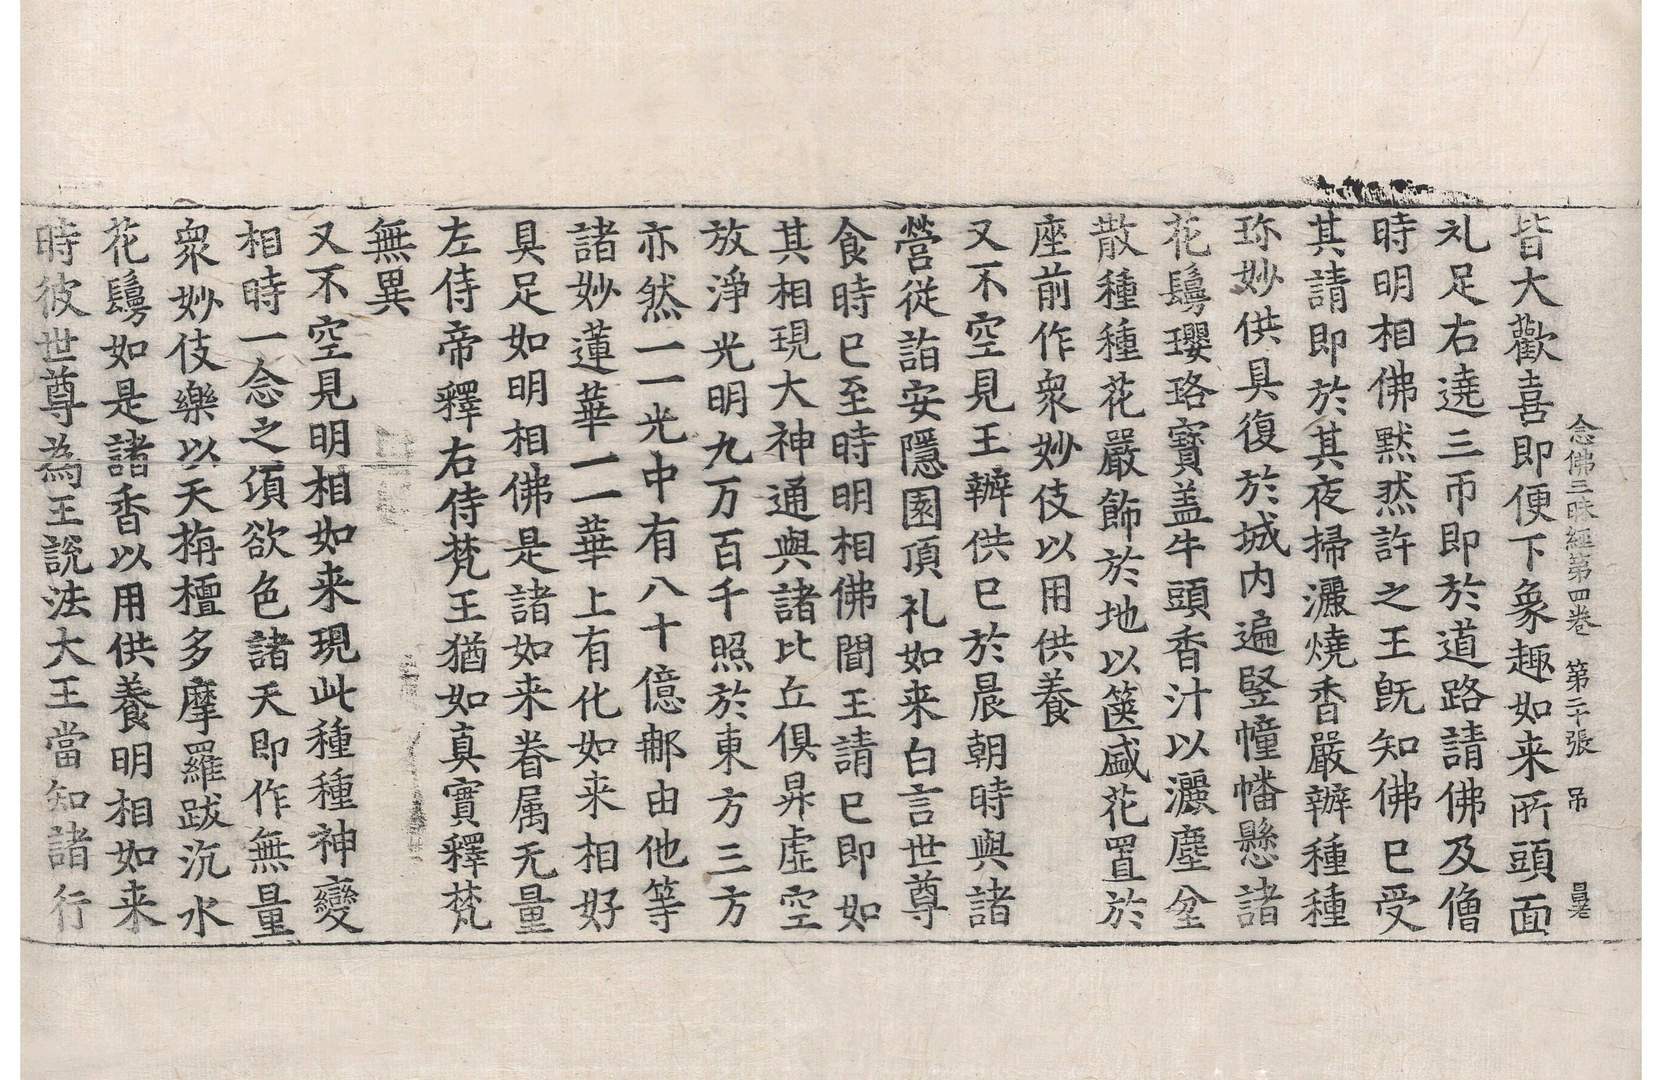 念佛三昧經第四卷 第二十張 吊
皆大歡喜即便下象趣如来所頭面
礼足右遶三帀即於道路請佛及僧
時明相佛黙然許之王旣知佛已受
其請即於其夜掃灑燒香嚴辦種種
珎妙供具復於城内遍竪幢幡懸諸
花鬘瓔珞寶盖牛頭香汁以灑塵坌
散種種花嚴飾於地以篋盛花置於
座前作衆妙伎以用供養
又不空見王辦供已於晨朝時與諸
營從詣安隱園頂礼如来白言世尊
食時已至時明相佛聞王請已即如
其相現大神通與諸比丘俱昇虚空
放淨光明九万百千照於東方三方
亦然一一光中有八十億那由他等
諸妙蓮華一一華上有化如来相好
具足如明相佛是諸如来眷属无量
左侍帝釋右侍梵王猶如真實釋梵
無異
又不空見明相如来現此種種神變
相時一念之頃欲色諸天即作無量
衆妙伎樂以天栴檀多摩羅跋沉水
花鬘如是諸香以用供養明相如来
時彼世尊為王說法大王當知諸行